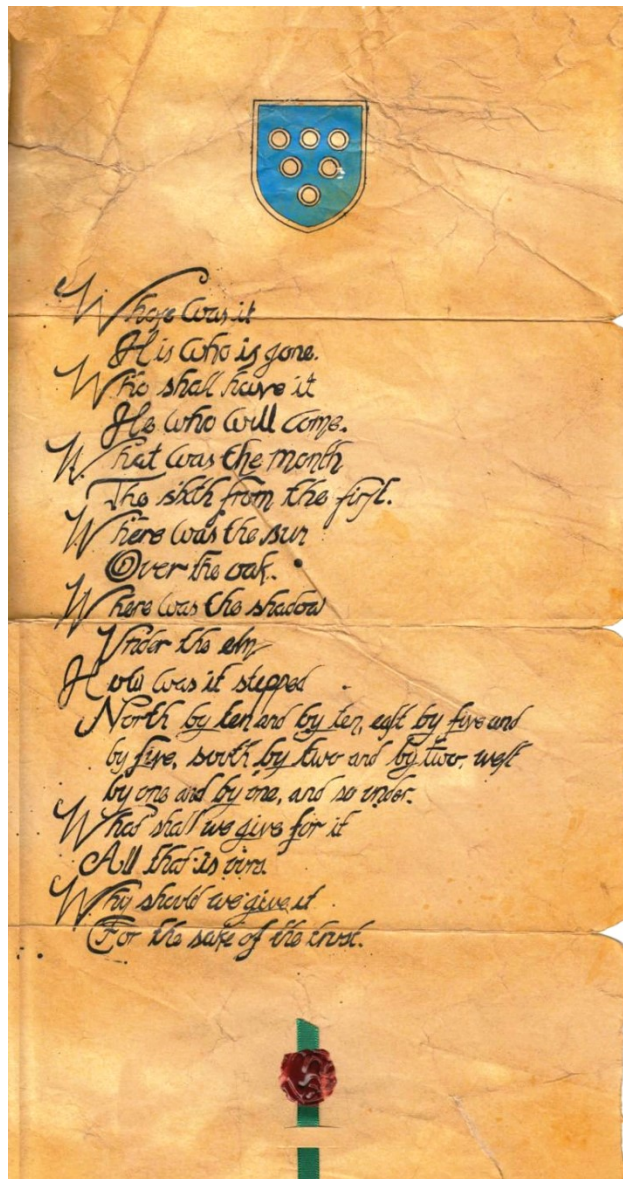 Whose was it
His who is gone.
Who shall have it
He who will come.
What was the month
The sixth from the first.
Where was the sun
Over the oak.
Where was the shadow
Under the elm
How was it stepped
North by ten and by ten, east by five and
by five, south by two and by two, west
by one and by one, and so under.
What shall we give for it
All that is ours
Why should we give it
For the sake of the trust.